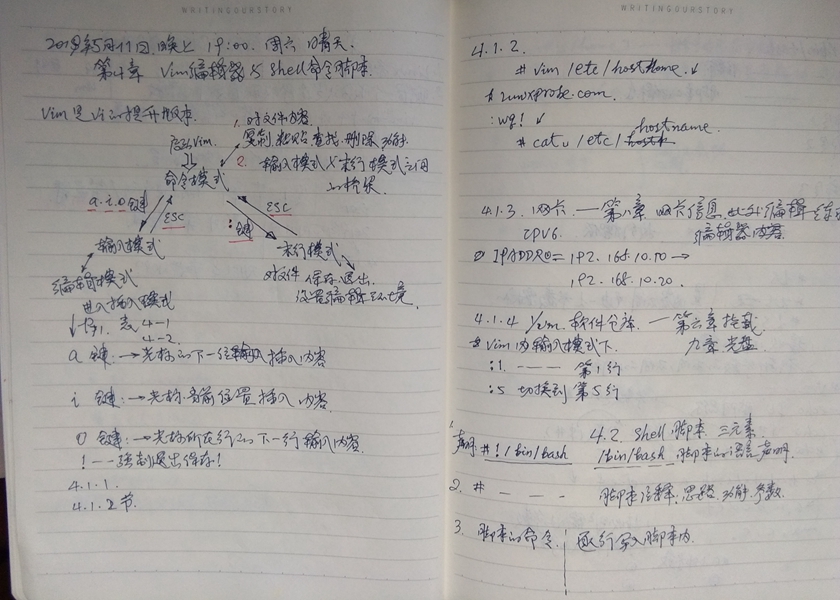 WRITINGOURSTORY
2019年5月11日.晚上 19:00. 周六 晴天.
第4章 Vim编辑器与Shell命令脚本.
Vim是Vi的提升版本.
启动Vim.
1. 对文件内容.
复制.粘贴.查找.删除.功能.
2. 输入模式与末行模式之间
的桥梁.
命令模式
a.i.o键
ESC
ESC
:键
输入模式
末行模式
编辑模式
进入插入模式
对文件 保存.退出.
设置编辑环境.
表 4-1
4-2.
a 键:→光标的下一位 插入内容
i 键:→光标当前位置插入内容
o 键:→光标所在行的下一行输入内容.
! --强制退出保存!
4.1.1.
4.1.2节.
WRITINGOURSTORY
4.1.2.
# vim /etc/hostname.↙
:wq! ↙
# cat /etc/hostname.
4.1.3. 网卡 —第八章 网卡信息.
IPV6.
编辑器内容
192.168.10.10 →
192.168.10.20.
4.1.4 Yum.软件仓库. —第六章挂载
Vim 内输入模式下. 九章 光盘
:1. --- 第1行
:5 切换到 第5行
4.2. Shell 脚本. 三元素.
1. 声明 #!/bin/bash /bin/bash 脚本的语言声明.
2. # --- 脚本注释.思路.功能.参数.
3. 脚本的命令. 逐行写入脚本内.